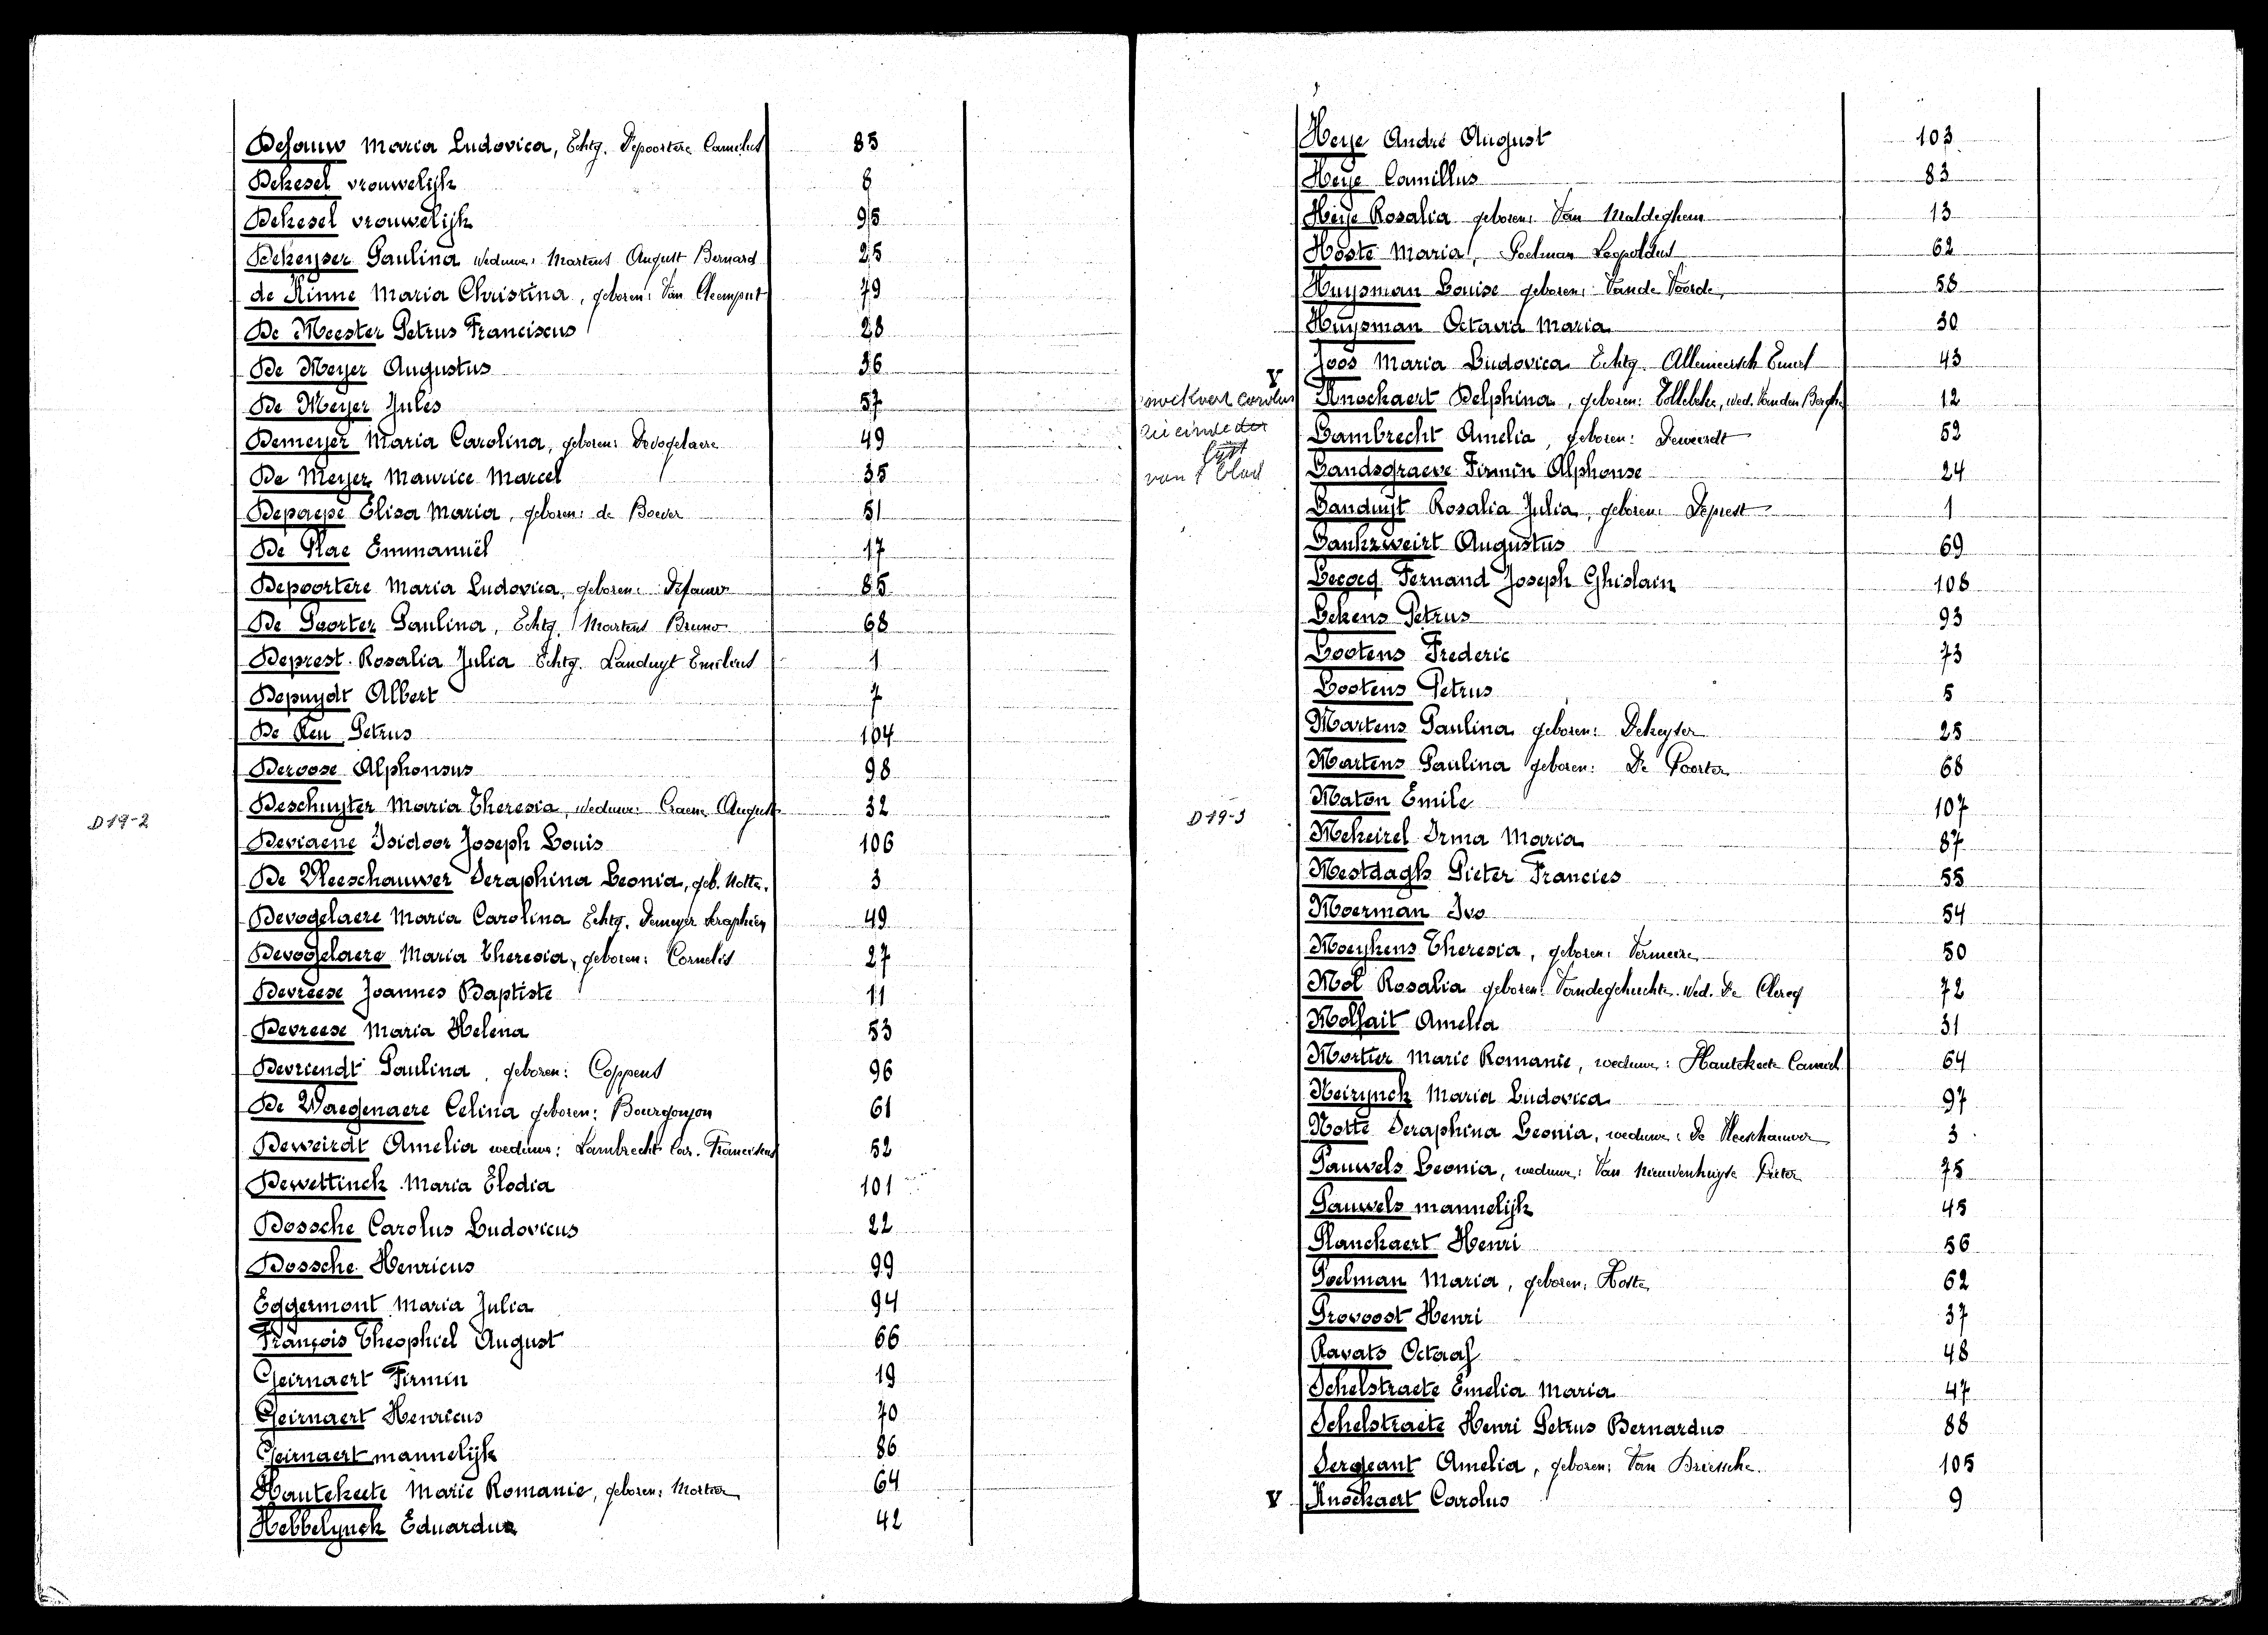 Dejauw Maria Ludovica, Echtg. Depoortere Camelus 85
Dekesel vrouwelijk 8
Dekesel vrouwelijk 95
Dekeyser Paulina weduwe: Martens August Bernard 25
de Kinne Maria Christina, geboren: Van Cleemput 79
De Meester Petrus Franciscus 28
De Meyer Augustus 36
De Meyer Jules 57
Demeyer Maria Carolina, geboren: Devogelaere 49
De Meyer Maurice Marcel 35
Depaepe Elisa Maria, geboren: de Boever 51
De Plae Emmanuël 17
Depoortere Maria Ludovica, geboren: Dejauw 85
De Poorter Paulina, Echtg. Martens Bruno 68
Deprest Rosalia Julia Echtg. Landuyt Emilius 1
Depuydt Albert 7
De Reu Petrus 104
Deroose Alphonsus 98
Deschuyter Maria Theresia, weduwe: Craene August 32
D19-2
Deviaene Isidoor Joseph Louis 106
De Vleeschauwer Seraphina Leonia, geb. Notte. 3
Devogelaere Maria Carolina Echtg. Demeyer Seraphien 49
Devogelaere Maria Theresia, geboren: Cornelis 27
Devreese Joannes Baptiste 11
Devreese Maria Helena 53
Devriendt Paulina, geboren: Coppens 96
De Waegenaere Celina geboren: Bourgonjon 61
Deweirdt Amelia weduwe: Lambrecht Car. Franciscus 52
Dewettinck Maria Elodia 101
Dossche Carolus Ludovicus 22
Dossche Henricus 99
Eggermont Maria Julia 94
François Theophiel August 66
Geirnaert Firmin 19
Geirnaert Henricus 70
Geirnaert mannelijk 86
Hautekeete Marie Romanie, geboren: Mortier 64
Hebbelynck Eduardus 42
Heye André August 103
Heye Camillus 83
Heije Rosalia geboren: Van Maldeghem 13
Hoste Maria, Poelman Leopoldus 62
Huysman Louise geboren: Vande Voorde 58
Huysman Octavia Maria 30
Joos Maria Ludovica Echtg. Allemeersch Emiel 43
V
carolus
zie einde der
lijst
van
Knockaert Delphina, geboren: Tollebeke, wed. Vanden Berghe 12
Lambrecht Amelia, geboren: Deweirdt 52
Landsgraeve Firmin Alphonse 24
Landuijt Rosalia Julia, geboren: Deprest 1
Lankzweirt Augustus 69
Lecocq Fernand Joseph Ghislain 108
Lekens Petrus 93
Lootens Frederic 73
Lootens Petrus 5
Martens Paulina geboren: Dekeyser 25
Martens Paulina geboren: De Poorter 68
Maton Emile 107
D19-3
Mekeirel Irma Maria 87
Mestdagh Pieter Francies 55
Moerman Ivo 54
Moeykens Theresia, geboren: Vermeire 50
Mol Rosalia geboren: Vandegehuchte. Wed. De Clercq 72
Molfait Amelia 31
Mortier Marie Romanie, weduwe: Hautekeete Camiel 64
Neirynck Maria Ludovica 97
Notte Seraphina Leonia, weduwe: De Vleeschauwer 3
Pauwels Leonia, weduwe: Van Nieuwenhuyse Pieter 75
Pauwels mannelijk 45
Planckaert Henri 56
Poelman Maria, geboren: Hoste 62
Provoost Henri 37
Ravats Octaaf 48
Schelstraete Emelia Maria 47
Schelstraete Henri Petrus Bernardus 88
Sergeant Amelia, geboren: Van Driessche. 105
V Knockaert Carolus 9